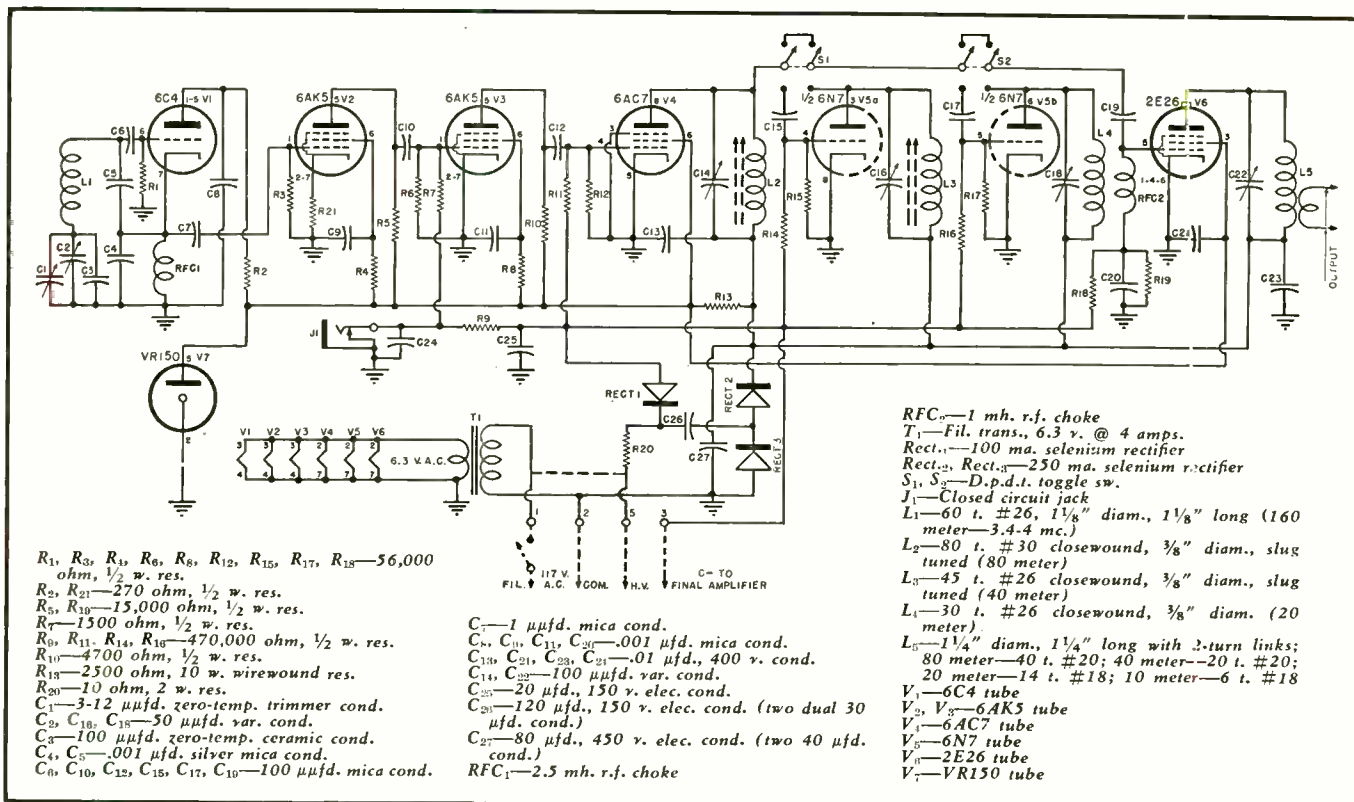 6C4
1-5 V1
6AK5
5 V2
6AK5
5 V3
6AC7
8 V4
S1
1/2 6N7
3 V5a
S2
1/2 6N7
6 V5b
2E26
V6
C6
6
L1
C5
R1
7
C8
C1
C2
C3
C4
C7
RFC1
R2
1
2-7
6
R3
R21
C9
R4
R5
C10
R6
R7
1
2-7
6
C11
R8
R10
C12
R11
R12
4
3
5
6
C13
C14
L2
R13
C15
4
R15
R14
8
C16
L3
C17
5
R17
R16
C18
L4
C19
RFC2
5
1-4-6
3
R18
C20
R19
C21
C22
L5
C23
OUTPUT
J1
C24
R9
C25
VR150
5 V7
2
RECT 1
RECT 2
RECT 3
C26
C27
R20
V1 V2 V3 V4 V5 V6
3 3 3 2 2 2
4 4 4 7 7 7
6.3 V. A.C.
T1
1 2 5 3
FIL.
117 V. A.C.
COM.
H.V.
C- TO FINAL AMPLIFIER
R1, R3, R4, R6, R8, R12, R15, R17, R18—56,000
ohm, 1/2 w. res.
R2, R21—270 ohm, 1/2 w. res.
R5, R19—15,000 ohm, 1/2 w. res.
R7—1500 ohm, 1/2 w. res.
R9, R11, R14, R16—470,000 ohm, 1/2 w. res.
R10—4700 ohm, 1/2 w. res.
R13—2500 ohm, 10 w. wirewound res.
R20—10 ohm, 2 w. res.
C1—3-12 μμfd. zero-temp. trimmer cond.
C2, C16, C18—50 μμfd. var. cond.
C3—100 μμfd. zero-temp. ceramic cond.
C4, C5—.001 μfd. silver mica cond.
C6, C10, C12, C15, C17, C19—100 μμfd. mica cond.
C7—1 μμfd. mica cond.
C8, C9, C11, C20—.001 μfd. mica cond.
C13, C21, C23, C24—.01 μfd., 400 v. cond.
C14, C22—100 μμfd. var. cond.
C25—20 μfd., 150 v. elec. cond.
C26—120 μfd., 150 v. elec. cond. (two dual 30
μfd. cond.)
C27—80 μfd., 450 v. elec. cond. (two 40 μfd.
cond.)
RFC1—2.5 mh. r.f. choke
RFC2—1 mh. r.f. choke
T1—Fil. trans., 6.3 v. @ 4 amps.
Rect.1—100 ma. selenium rectifier
Rect.2, Rect.3—250 ma. selenium rectifier
S1, S2—D.p.d.t. toggle sw.
J1—Closed circuit jack
L1—60 t. #26, 1 1/8" diam., 1 1/8" long (160
meter—3.4-4 mc.)
L2—80 t. #30 closewound, 3/8" diam., slug
tuned (80 meter)
L3—45 t. #26 closewound, 3/8" diam., slug
tuned (40 meter)
L4—30 t. #26 closewound, 3/8" diam. (20
meter)
L5—1 1/4" diam., 1 1/4" long with 2-turn links;
80 meter—40 t. #20; 40 meter—20 t. #20;
20 meter—14 t. #18; 10 meter—6 t. #18
V1—6C4 tube
V2, V3—6AK5 tube
V4—6AC7 tube
V5—6N7 tube
V6—2E26 tube
V7—VR150 tube